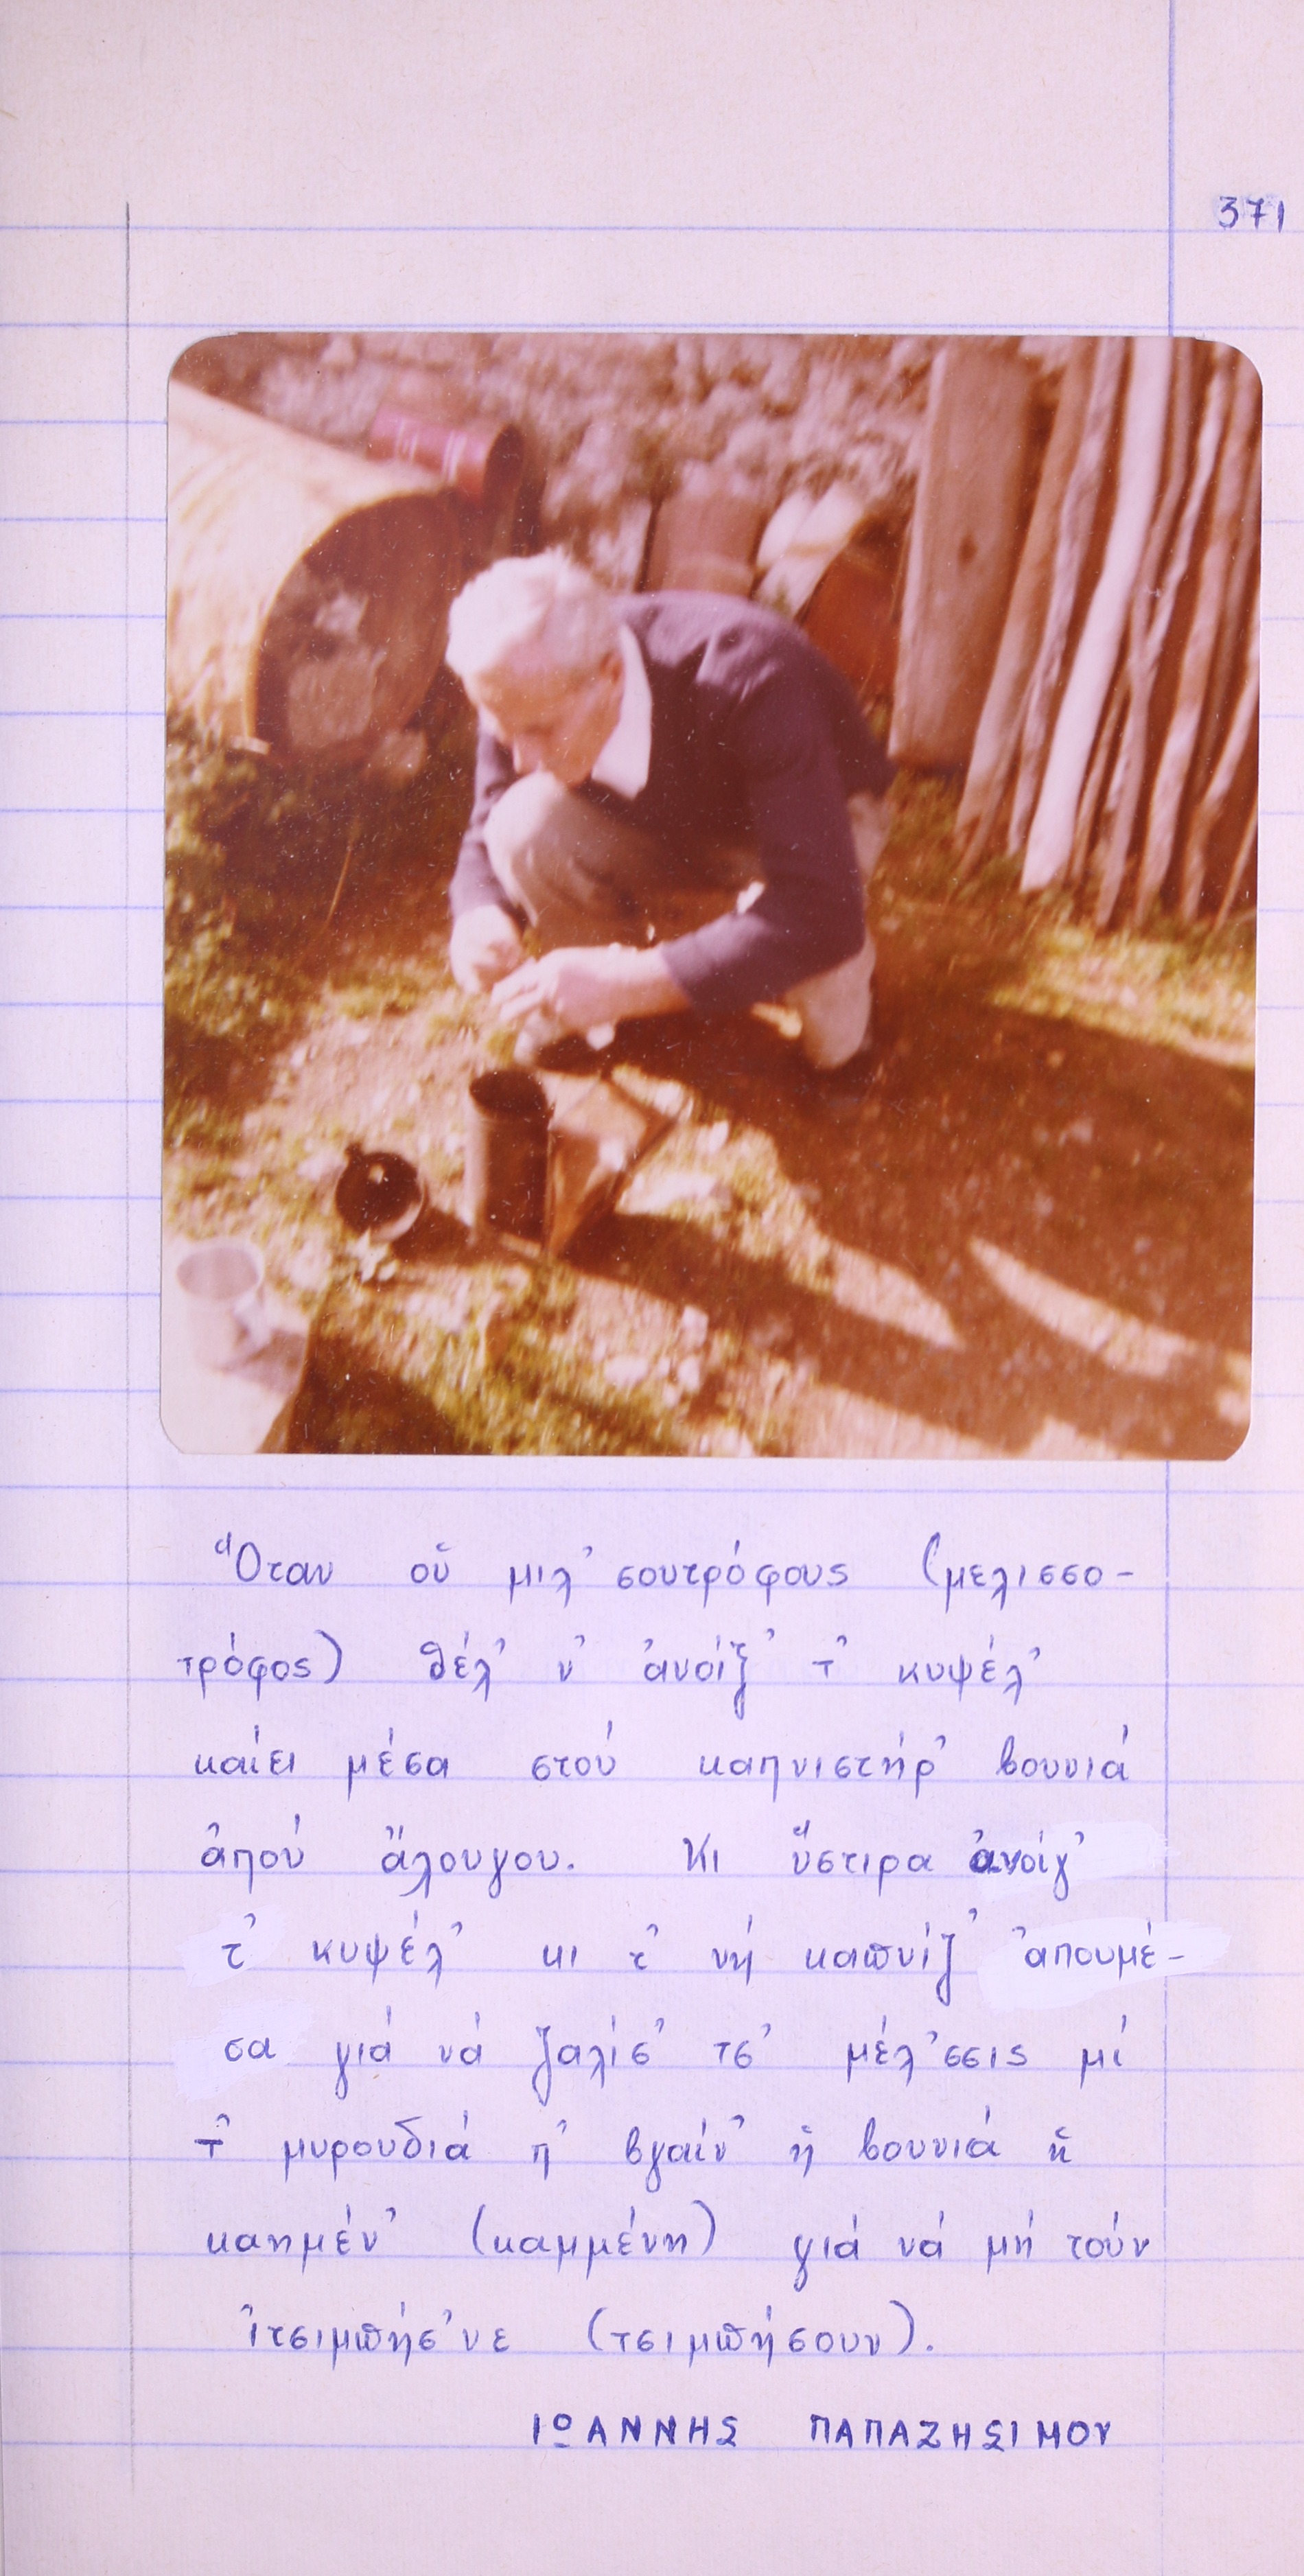 371
Ὅταν οὑ μιλ᾿σουτρόφους (μελισσο-
τρόφος) θέλ᾿ ν᾿ ἀνοίξ᾿ τ᾿ κυψέλ᾿
καίει μέσα στοὺ καπνιστήρ᾿ βουνιά
ἀποὺ ἄλουγου. Κι ὕστιρα ἀνοίγ᾿
τ᾿ κυψέλ᾿ κι τ᾿ νή καπνίζ᾿ ἀπουμέ-
σα γιά νά ζαλίσ᾿ τσ᾿ μέλ᾿σσις μί
τ᾿ μυρουδιά π᾿ βγαίν᾿ ἡ βουνιά ἡ
καημέν᾿ (καμμένη) γιά νά μή τούν
ἰτσιμπήσ᾿νε (τσιμπήσουν).
ΙΩΑΝΝΗΣ ΠΑΠΑΖΗΣΙΜΟΥ